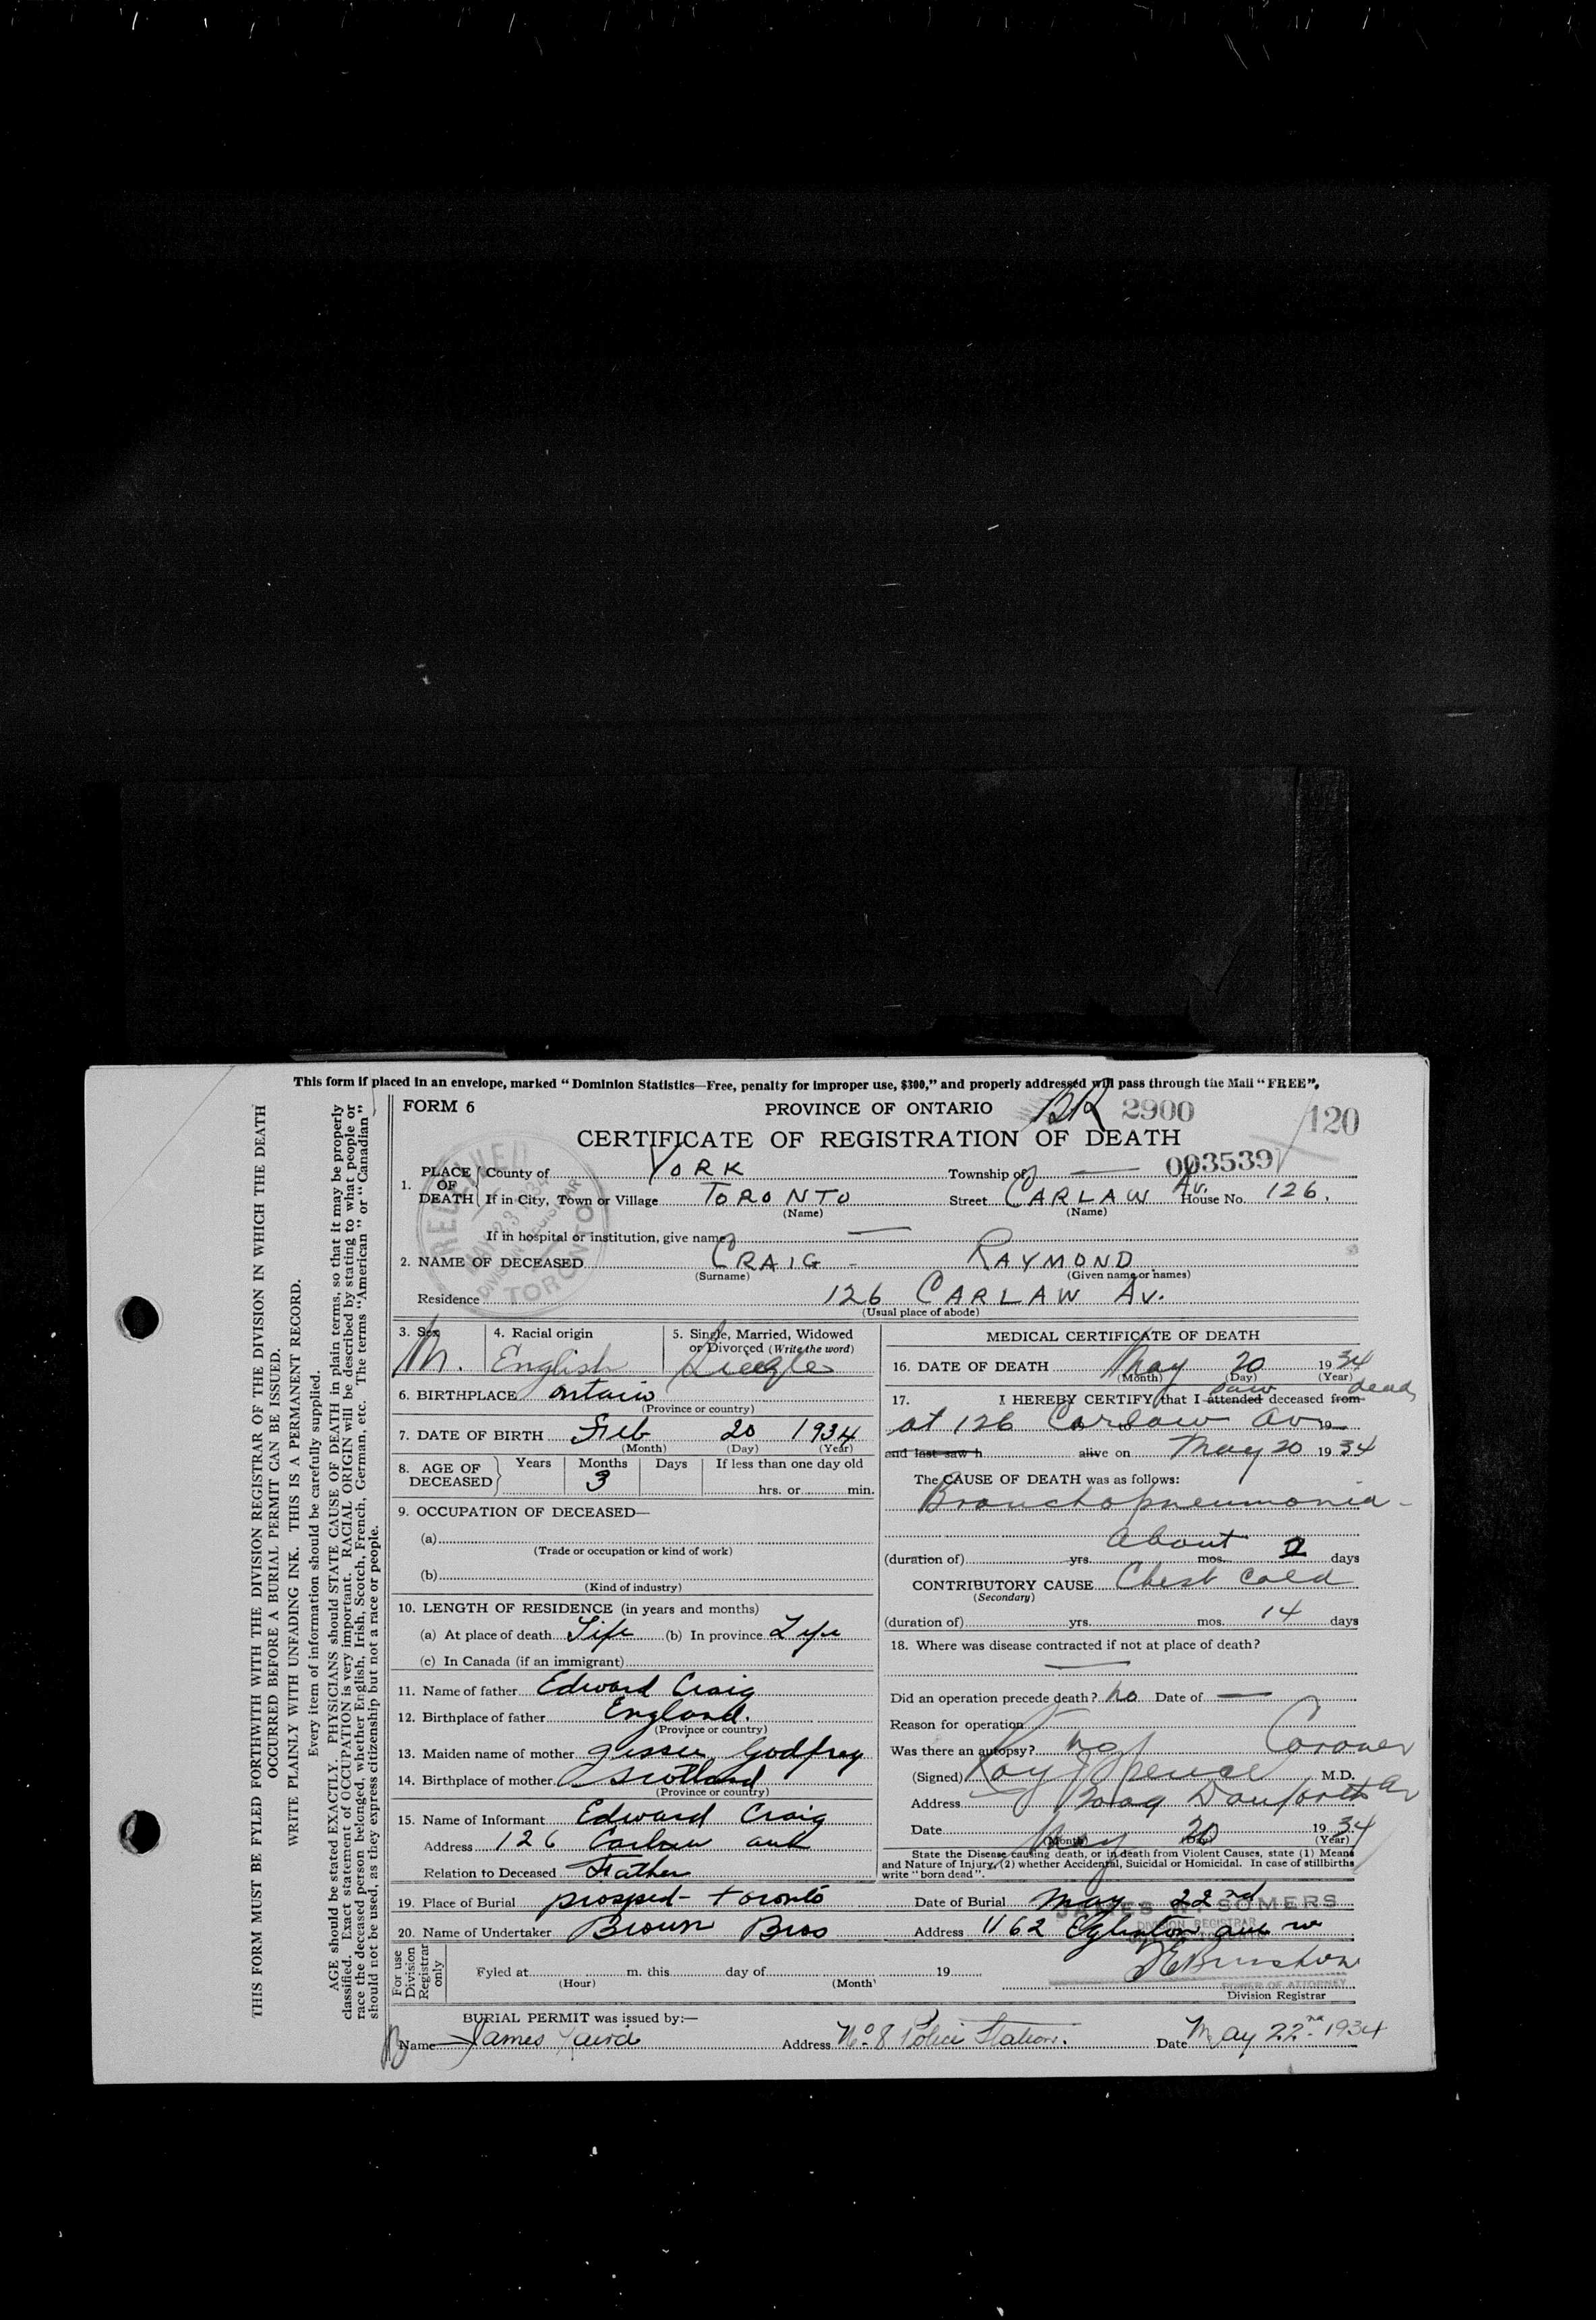 This form if placed in an envelope, marked “Dominion Statistics—Free, penalty for improper use, $300,” and properly addressed will pass through the Mail “FREE”.
THIS FORM MUST BE FYLED FORTHWITH WITH THE DIVISION REGISTRAR OF THE DIVISION IN WHICH THE DEATH
OCCURRED BEFORE A BURIAL PERMIT CAN BE ISSUED.
WRITE PLAINLY WITH UNFADING INK. THIS IS A PERMANENT RECORD.
Every item of information should be carefully supplied.
AGE should be stated EXACTLY. PHYSICIANS should STATE CAUSE OF DEATH in plain terms, so that it may be properly
classified. Exact statement of OCCUPATION is very important. RACIAL ORIGIN will be described by stating to what people or
race the deceased person belonged, whether English, Irish, Scotch, French, German, etc. The terms "American" or "Canadian"
should not be used, as they express citizenship but not a race or people.
FORM 6 PROVINCE OF ONTARIO 2900 120
CERTIFICATE OF REGISTRATION OF DEATH
003539
RECEIVED MAY 23 DIVISION REGISTRAR TORONTO
1. PLACE OF DEATH County of YORK Township of —
If in City, Town or Village TORONTO Street CARLAW Av. House No. 126.
(Name) (Name)
If in hospital or institution, give name —
2. NAME OF DECEASED CRAIG - RAYMOND
(Surname) (Given name or names)
Residence 126 CARLAW Av.
(Usual place of abode)
3. Sex M.
4. Racial origin English
5. Single, Married, Widowed
or Divorced (Write the word)
Single
6. BIRTHPLACE Ontario
(Province or country)
7. DATE OF BIRTH Feb 20 1934
(Month) (Day) (Year)
8. AGE OF DECEASED Years Months Days If less than one day old
3 hrs. or min.
9. OCCUPATION OF DECEASED—
(a)
(Trade or occupation or kind of work)
(b)
(Kind of industry)
10. LENGTH OF RESIDENCE (in years and months)
(a) At place of death Life (b) In province Life
(c) In Canada (if an immigrant)
11. Name of father Edward Craig
12. Birthplace of father England.
(Province or country)
13. Maiden name of mother Jessie Godfrey
14. Birthplace of mother Scotland
(Province or country)
15. Name of Informant Edward Craig
Address 126 Carlaw ave
Relation to Deceased Father
MEDICAL CERTIFICATE OF DEATH
16. DATE OF DEATH May 20 1934
(Month) (Day) (Year)
17. I HEREBY CERTIFY that I attended saw deceased from dead
at 126 Carlaw Av 19
and last saw h alive on May 20 1934
The CAUSE OF DEATH was as follows:
Bronchopneumonia -
about
(duration of) yrs. mos. 2 days
CONTRIBUTORY CAUSE Chest Cold
(Secondary)
(duration of) yrs. mos. 14 days
18. Where was disease contracted if not at place of death?
—
Did an operation precede death? no Date of —
Reason for operation
Was there an autopsy? no Coroner
(Signed) Roy J Spence M.D.
Address Danforth Av
Date May 20 1934
(Month) (Day) (Year)
State the Disease causing death, or in death from Violent Causes, state (1) Means
and Nature of Injury, (2) whether Accidental, Suicidal or Homicidal. In case of stillbirths
write “born dead”.
19. Place of Burial prospect - toronto Date of Burial May 22nd
JAMES W. SOMERS
DIVISION REGISTRAR
20. Name of Undertaker Brown Bros Address 1162 Eglinton ave w
For use Division Registrar only
Fyled at m. this day of 19
(Hour) (Month)
POWER OF ATTORNEY
Division Registrar
BURIAL PERMIT was issued by:—
Name James Laird Address No 8 Police Station. Date May 22nd 1934